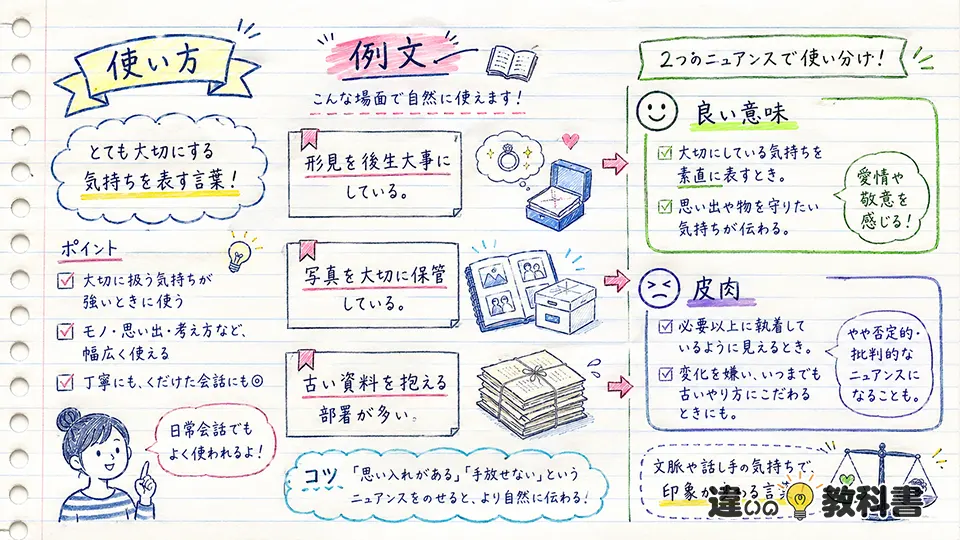 使い方
とても大切にする
気持ちを表す言葉！
ポイント
大切に扱う気持ちが
強いときに使う
モノ・思い出・考え方など、
幅広く使える
丁寧にも、くだけた会話にも◎
日常会話でも
よく使われるよ！
例文
こんな場面で自然に使えます！
形見を後生大事に
している。
写真を大切に保管
している。
古い資料を抱える
部署が多い。
コツ
「思い入れがある」「手放せない」という
ニュアンスをのせると、より自然に伝わる！
2つのニュアンスで使い分け！
良い意味
大切にしている気持ちを
素直に表すとき。
思い出や物を守りたい
気持ちが伝わる。
愛情や
敬意を
感じる！
皮肉
必要以上に執着して
いるように見えるとき。
変化を嫌い、いつまでも
古いやり方にこだわる
ときにも。
やや否定的・
批判的な
ニュアンスに
なることも。
文脈や話し手の気持ちで、
印象が わる言
違いの教科書